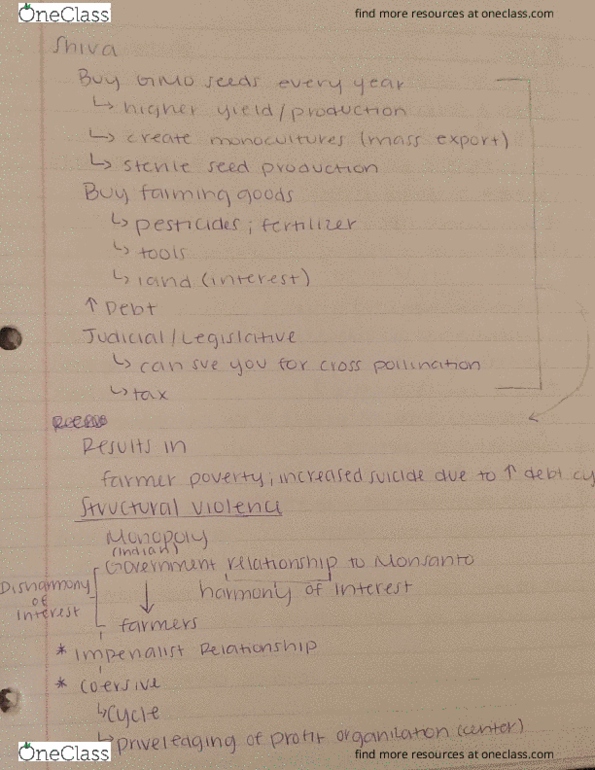 OneClass find more resources at oneclass.com
Shiva
Buy GMO seeds every year
↳ higher yield/production
↳ create monocultures (mass export)
↳ sterile seed production
Buy farming goods
↳ pesticides; fertilizer
↳ tools
↳ land (interest)
↑ Debt
Judicial/Legislative
↳ can sue you for cross pollination
↳ tax
Results in
farmer poverty; increased suicide due to ↑ debt cy
Structural violence
Monopoly
(indian)
Government relationship to Monsanto
Disharmony
of
interest
harmony of interest
farmers
* imperialist Relationship
* coersive
↳ cycle
↳ priveledging of profit organization (center)
OneClass find more resources at oneclass.com